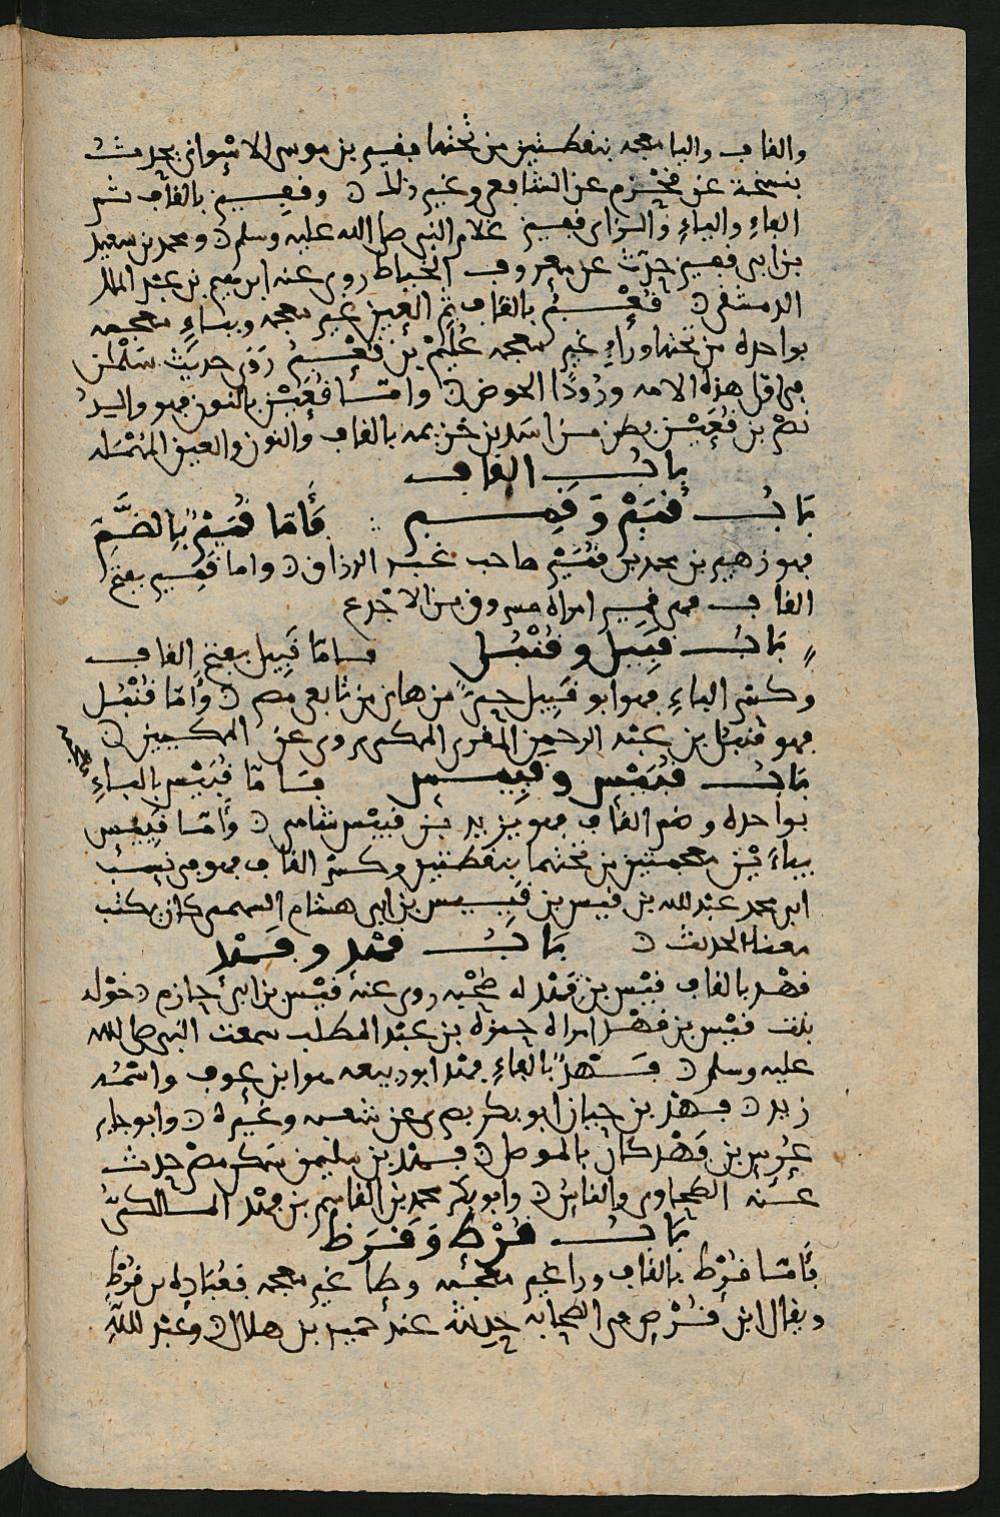 والقاف والياء معجمة بنقطتين من تحتها فقير بن موسى الاسواني يحدث
بنسخة عن محزم عن الشافعي وغير ذلك ۞ وقفيز بالقاف ثم
الفاء والياء والزاي قفيز غلام النبي صلى الله عليه وسلم ۞ ومحمد بن سعيد
بن ابي قفيز حدث عن معروف الخياط روى عنه ابرهيم بن عبد الملك
الدمشقي ۞ قُعْبُر بالقاف ثم العين غير معجمه وبباء معجمه
بواحده من تحتها وراء غير معجمه عُلَيْمُ بن قُعْبُر روى حديث سَلْمٰن
في اول هذه الامه ورودًا الحوض ۞ وامّا قُعَيْن بالنون فهو والد
نصر بن قُعَيْن بطن من اسد بن خزيمه بالقاف والنون والعين المهملة
باب القاف
بَابُ قُمَيْرٍ وَقَمِيرٍ فَأَمّا قُمَيْرٌ بِالضَّمِّ
فهو زهير بن محمد بن قُمَيْر صاحب عبد الرزاق ۞ واما قَمِير بفتح
القاف فهي قمير امراة مسروق بن الاجدع
بَابُ قَبِيل وقُنْبُل فامّا قَبِيل بفتح القاف
وكسر الباء فهو ابو قَبِيل حيّ بن هانئ من تابعي مصر ۞ وأمّا قُنْبُل
فهو قنبل بن عبد الرحمن المقرى المكي يروى عن المكيين ۞
بَابُ قُبَيْس وقِييس فامّا قُبَيْس بالباء معجمه
بواحده وضم القاف فهو يزيد بن قبيس شامي ۞ وأمّا قِييس
بياءَيْن معجمتين من تحتهما بنقطتين وكسر القاف فهو في نسب
ابي محمد عبد الله بن قيس بن قِييس بن ابي هشام السهمي كان يكتب
معنا الحديث ۞ بَابُ قهد وفهد
قهد بالقاف قيس بن قهد له صُحْبه روى عنه قيس بن ابي حازم ۞ خَوْله
بنت قيس بن قهد امراة حمزة بن عبد المطلب سمعت النبي صلى الله
عليه وسلم ۞ فَهْدٌ بالفاء فهد ابو ربيعه هو ابن عوف واسمه
زيد ۞ فهد بن حيان ابو بكر بصري عن شعبه وغيره ۞ وابو جابر
عُرس بن فَهْد كان بالموصل ۞ فهد بن سليمن سكن مصر حدث
عنه الطحاوي والناس ۞ وابو بكر محمد بن القاسم بن فهد المالكيّ
بَابُ قُرْط وَقَرَظ
فَأمّا قُرْط بالقاف وراء غير معجمه وطا غير معجمه فعُبَاده بن قُرْط
ويقال ابن قُرْص من الصحابة حديثه عند حميد بن هلال ۞ وعبد الله